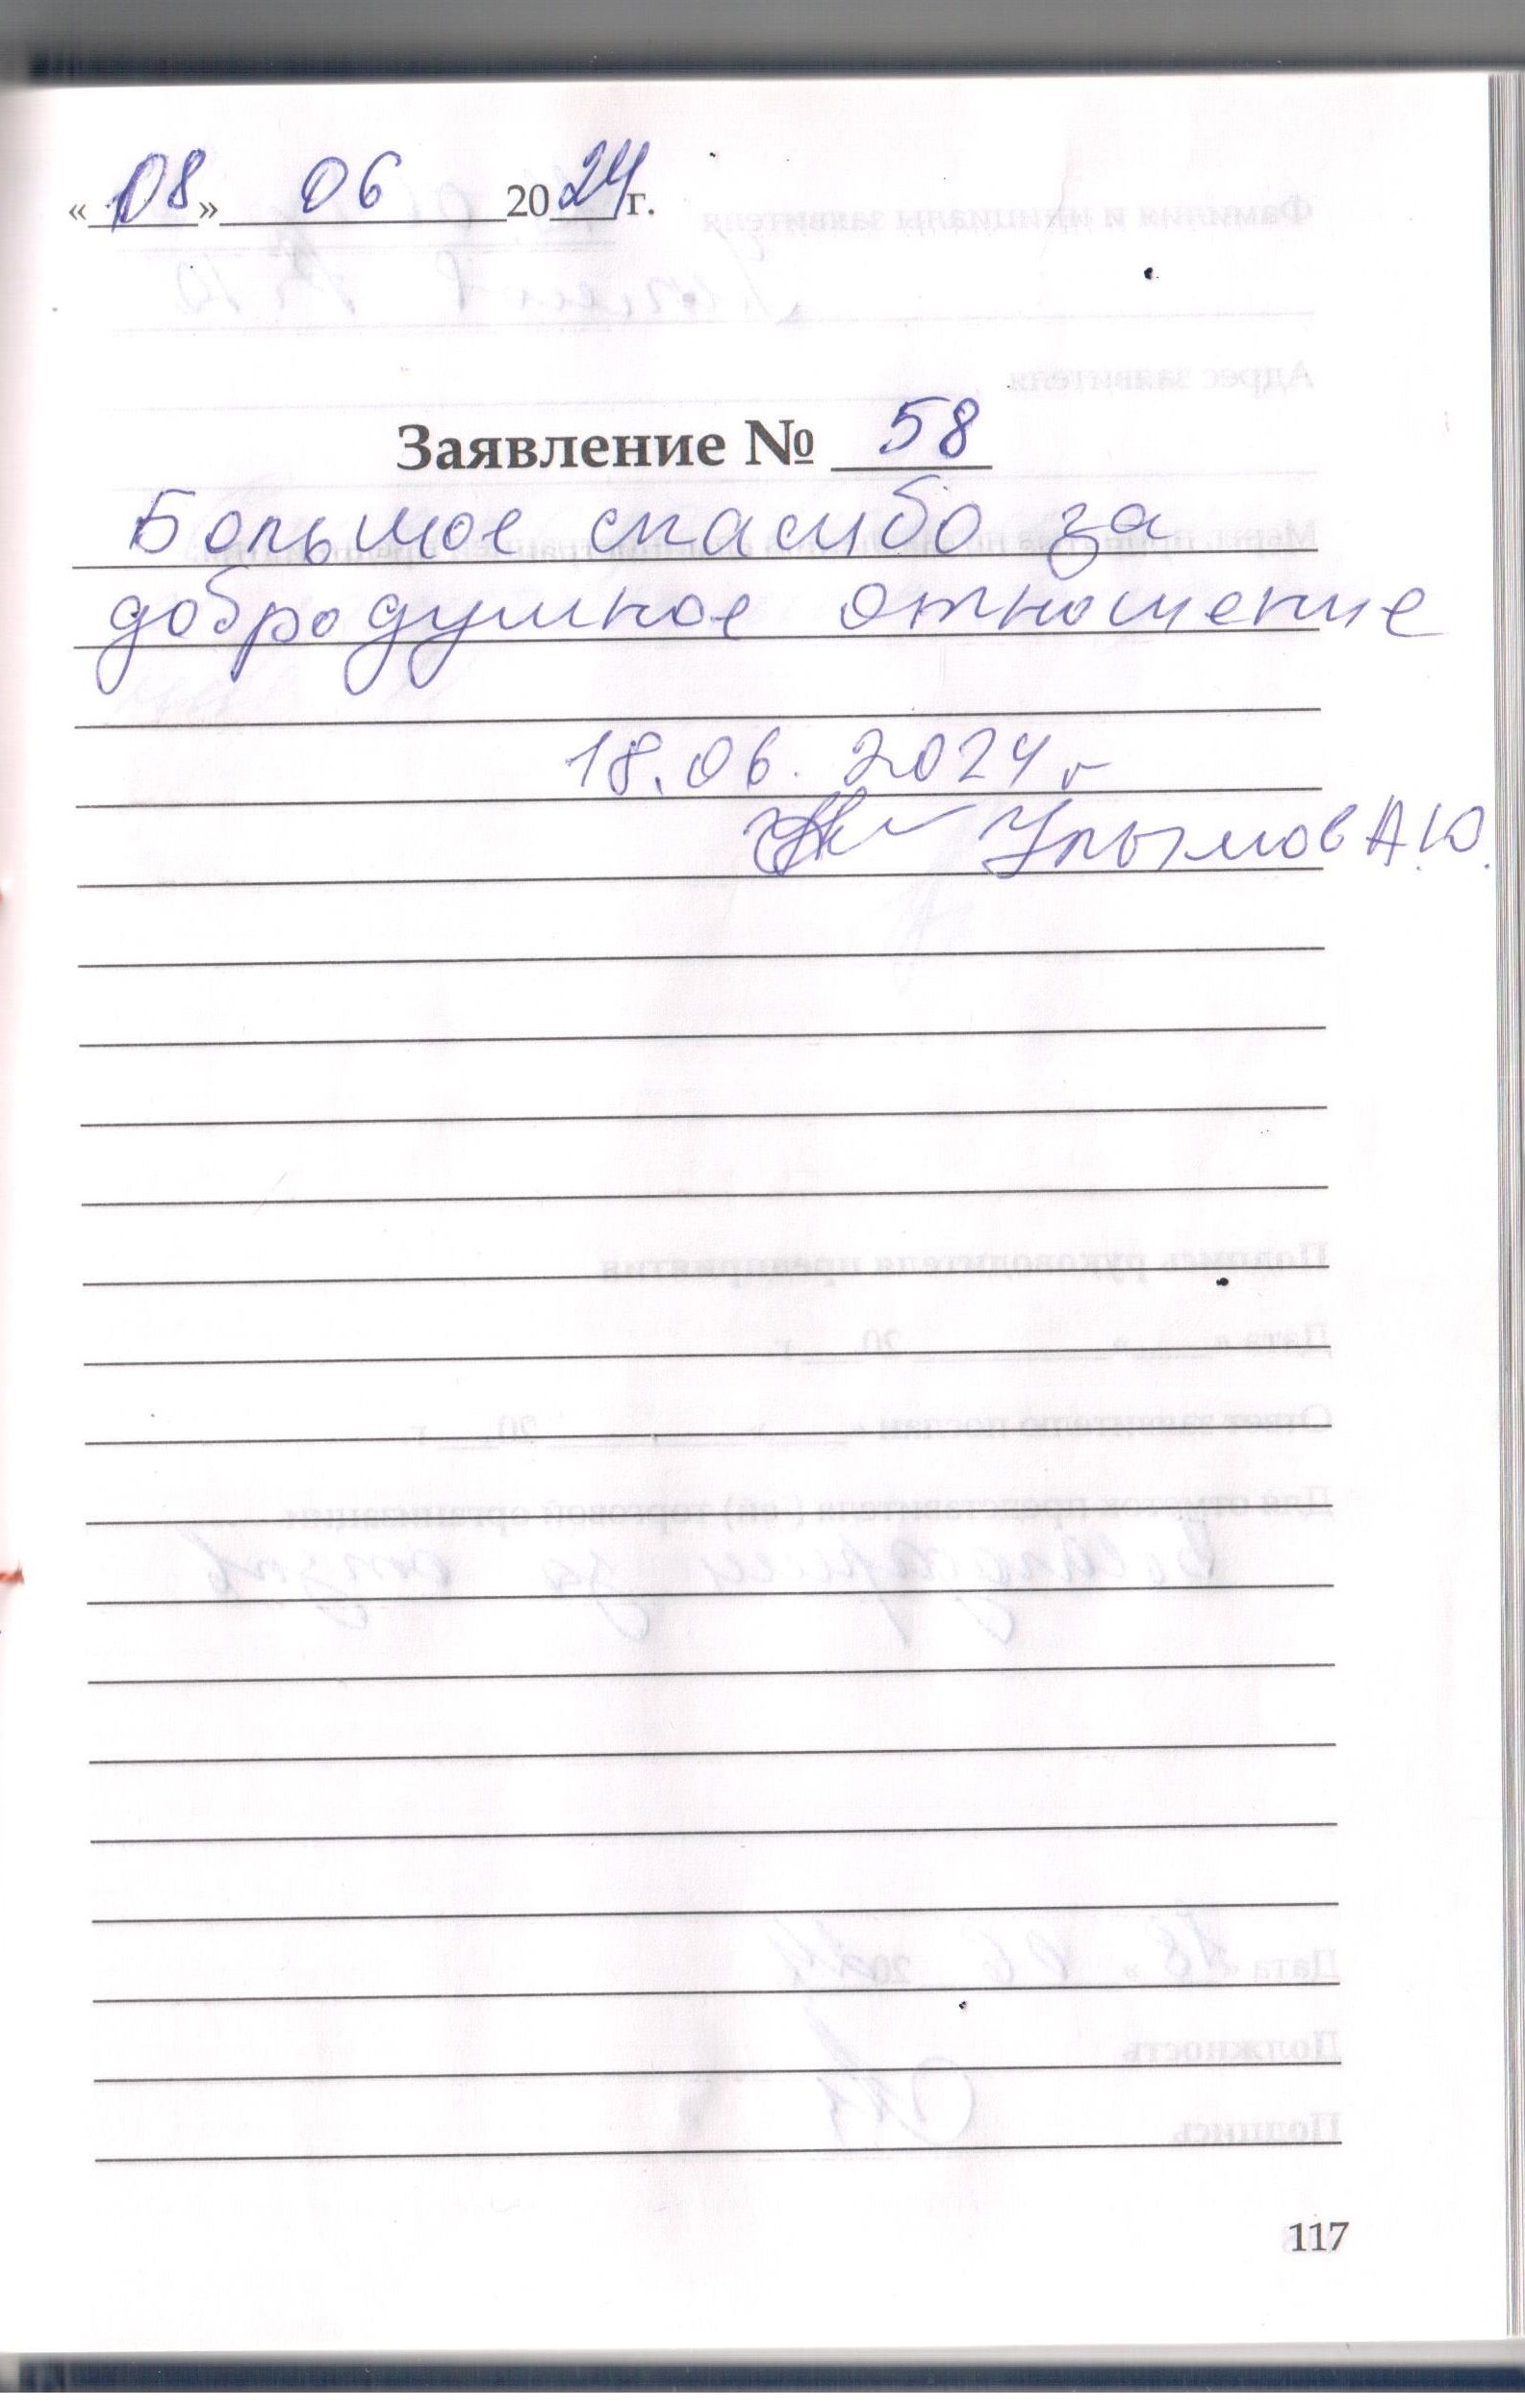 «18» 06 2024 г.
Заявление № 58
Большое спасибо за
добродушное отношение
18.06.2024 г
А.Ю.
117